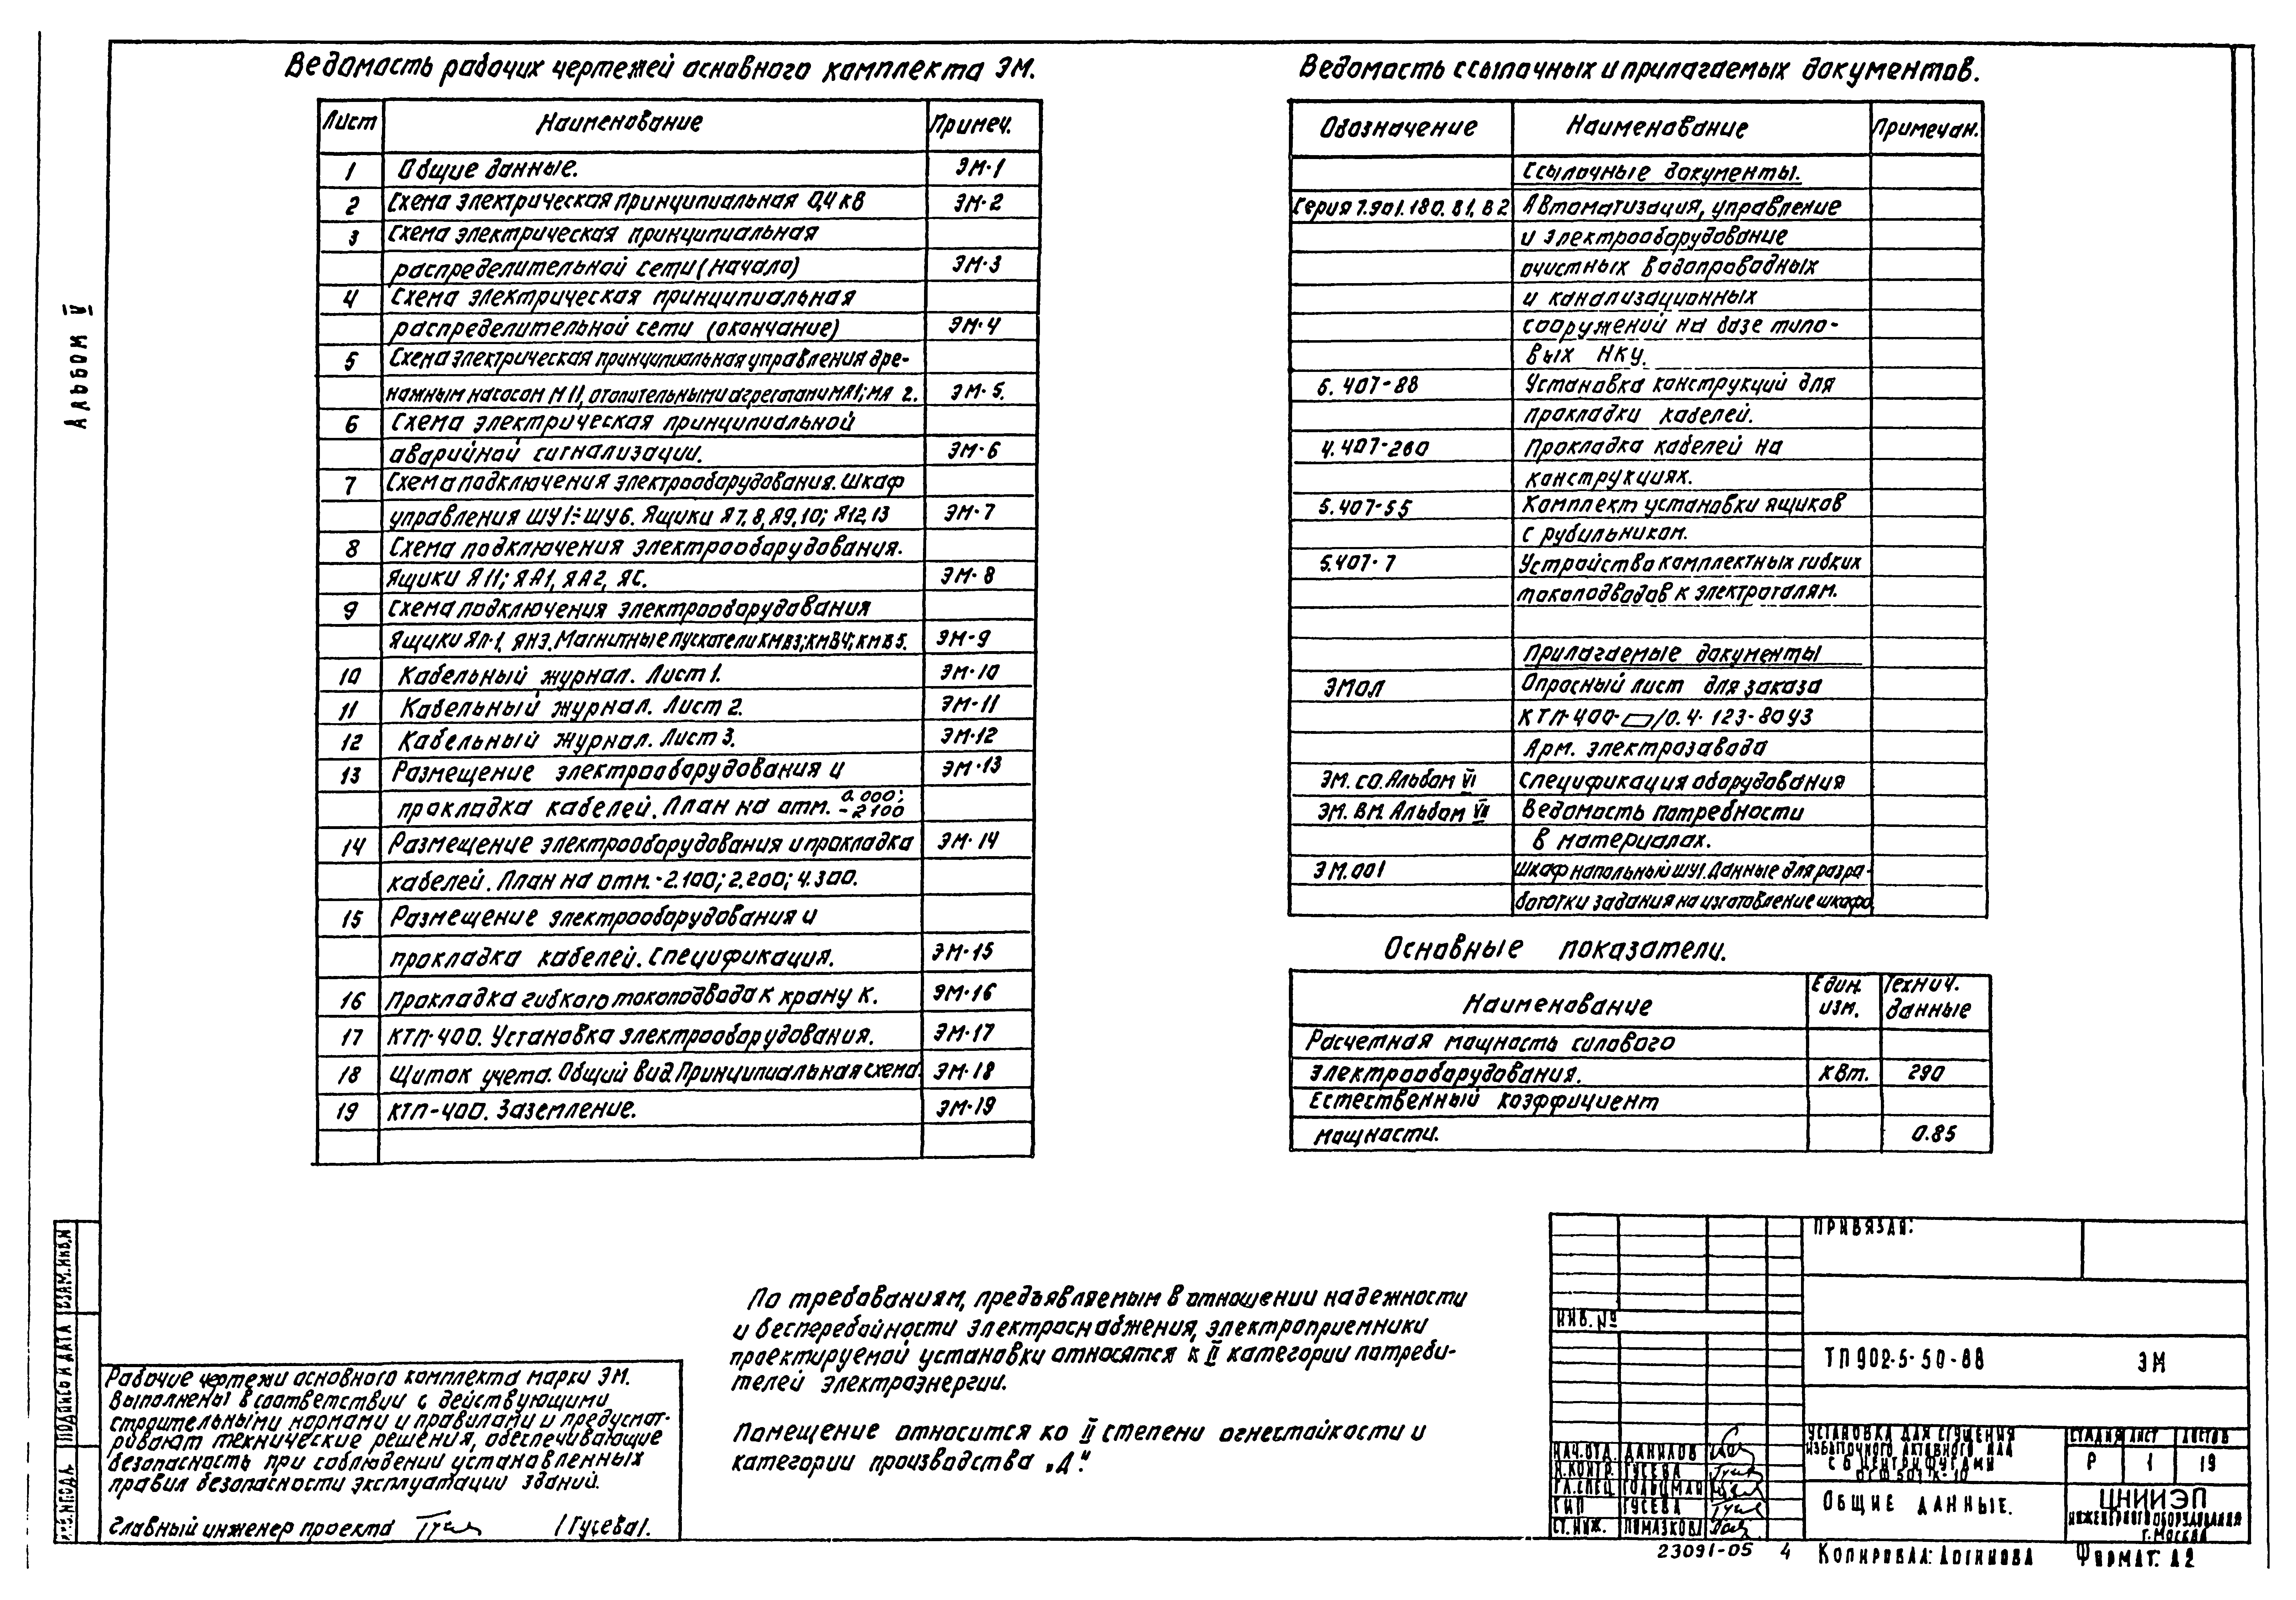 Альбом V
Ведомасть рабочих чертежей основного комплекта ЭМ.
Лист Наименование Примеч.
1 Общие данные. ЭМ-1
2 Схема электрическая принципиальная 0,4 кв ЭМ-2
3 Схема электрическая принципиальная
распределительной сети (начало) ЭМ-3
4 Схема электрическая принципиальная
распределительной сети (окончание) ЭМ-4
5 Схема электрическая принципиальная управления дре-
нажным насосом М11, отопительными агрегатами МЯ1; МЯ 2. ЭМ-5.
6 Схема электрическая принципиальной
аварийной сигнализации. ЭМ-6
7 Схема подключения электрооборудования. Шкаф
управления ШУ1÷ШУ6. Ящики Я7,8, Я9,10; Я12,13 ЭМ-7
8 Схема подключения электрооборудования.
Ящики Я11; ЯА1, ЯА2, ЯС. ЭМ-8
9 Схема подключения электрооборудования
Ящики ЯП-1, ЯНЭ. Магнитные пускатели КМВ3; КМВ4; КМВ5. ЭМ-9
10 Кабельный журнал. Лист 1. ЭМ-10
11 Кабельный журнал. Лист 2. ЭМ-11
12 Кабельный журнал. Лист 3. ЭМ-12
13 Размещение электрооборудования и ЭМ-13
прокладка кабелей. План на отм. 0.000; -2100
14 Размещение электрооборудования и прокладка ЭМ-14
кабелей. План на отм. -2.100; 2.200; 4.300.
15 Размещение электрооборудования и
прокладка кабелей. Спецификация. ЭМ-15
16 Прокладка гибкого токоподвода к крану К. ЭМ-16
17 КТП-400. Установка электрооборудования. ЭМ-17
18 Щиток учета. Общий вид. Принципиальная схема. ЭМ-18
19 КТП-400. Заземление. ЭМ-19
Ведомасть ссылочных и прилагаемых документов.
Обозначение Наименование Примечан.
Ссылочные документы.
Серия 7.901.180. В1, В2 Автоматизация, управление
и электрооборудование
очистных водопроводных
и канализационных
сооружений на базе типо-
вых НКУ.
5.407-88 Установка конструкций для
прокладки кабелей.
4.407-260 Прокладка кабелей на
конструкциях.
5.407-55 Комплект установки ящиков
с рубильником.
5.407-7 Устройство комплектных гибких
токоподводов к электроталям.
Прилагаемые документы
ЭМОЛ Опросный лист для заказа
КТП-400-▭/0.4-123-80У3
Арм. электрозавода
ЭМ.СО. Альбом VI Спецификация оборудования
ЭМ. ВМ. Альбом VII Ведомасть потребности
в материалах.
ЭМ.001 Шкаф напольный ШУ1. Данные для разра-
ботки задания на изготовление шкафа.
Основные показатели.
Наименование Един. изм. Технич. данные
Расчетная мощность силового
электрооборудования. кВт. 290
Естественный коэффициент
мощности. 0.85
По требованиям, предъявляемым в отношении надежности
и бесперебойности электроснабжения, электроприемники
проектируемой установки относятся к II категории потреби-
телей электроэнергии.
Помещение относится ко II степени огнестойкости и
категории производства „Д".
Рабочие чертежи основного комплекта марки ЭМ.
выполнены в соответствии с действующими
строительными нормами и правилами и предусмат-
ривают технические решения, обеспечивающие
безопасность при соблюдении установленных
правил безопасности эксплуатации зданий.
Главный инженер проекта /Гусева/.
ВЗАМ. ИНВ. N
ПОДПИСЬ И ДАТА
ИНВ. N ПОДЛ.
ПРИВЯЗАН:
ИНВ. №
ТП 902-5-50-88 ЭМ
НАЧ. ОТД. ДАНИЛОВ
Н. КОНТР. ГУСЕВА
ГЛ. СПЕЦ. ГОЛЬЦМАН
ГИП ГУСЕВА
СТ. ИНЖ. ПОМАЗКОВА
УСТАНОВКА ДЛЯ СГУЩЕНИЯ
ИЗБЫТОЧНОГО АКТИВНОГО ИЛА
С 6 ЦЕНТРИФУГАМИ
ОГШ 501 К-10
СТАДИЯ ЛИСТ ЛИСТОВ
Р 1 19
ОБЩИЕ ДАННЫЕ.
ЦНИИЭП
ИНЖЕНЕРНОГО ОБОРУДОВАНИЯ
Г. МОСКВА
23091-05 4 КОПИРОВАЛ: ЛОГИНОВА ФОРМАТ: А2